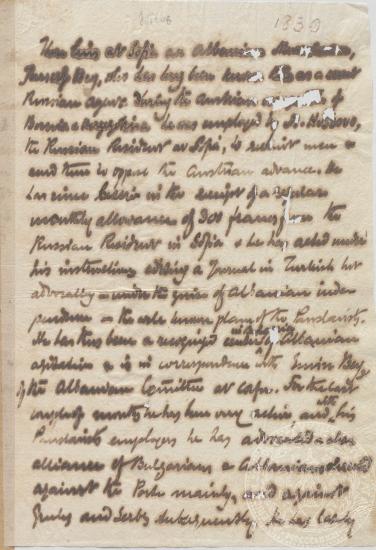 1880
There lives at Sofia an Albanian
Bey, who has long been known to us as a secret
Russian agent. During the Austrian of
Bosnia & Herzegovina he was employed by M.
the Russian Resident at Sofia, to recruit men &
send them to oppose the Austrian advance. He
has since been in the receipt of a regular
monthly allowance of 300 francs from the
Russian Resident in Sofia & he has acted under
his instructions editing a Journal in Turkish but
advocating under the guise of Albanian inde-
pendence the well known plans of the Panslavists.
He has thus been a recognized of Albanian
agitation & is in correspondence with Bey
of the Albanian Committee at Corfu. For the last
months he has been very active and, with his
Panslavist employers he has advocated a close
alliance of Bulgarians & Albanians directed
against the Porte mainly, and against
Greeks and Serbs subsequently. He has lately